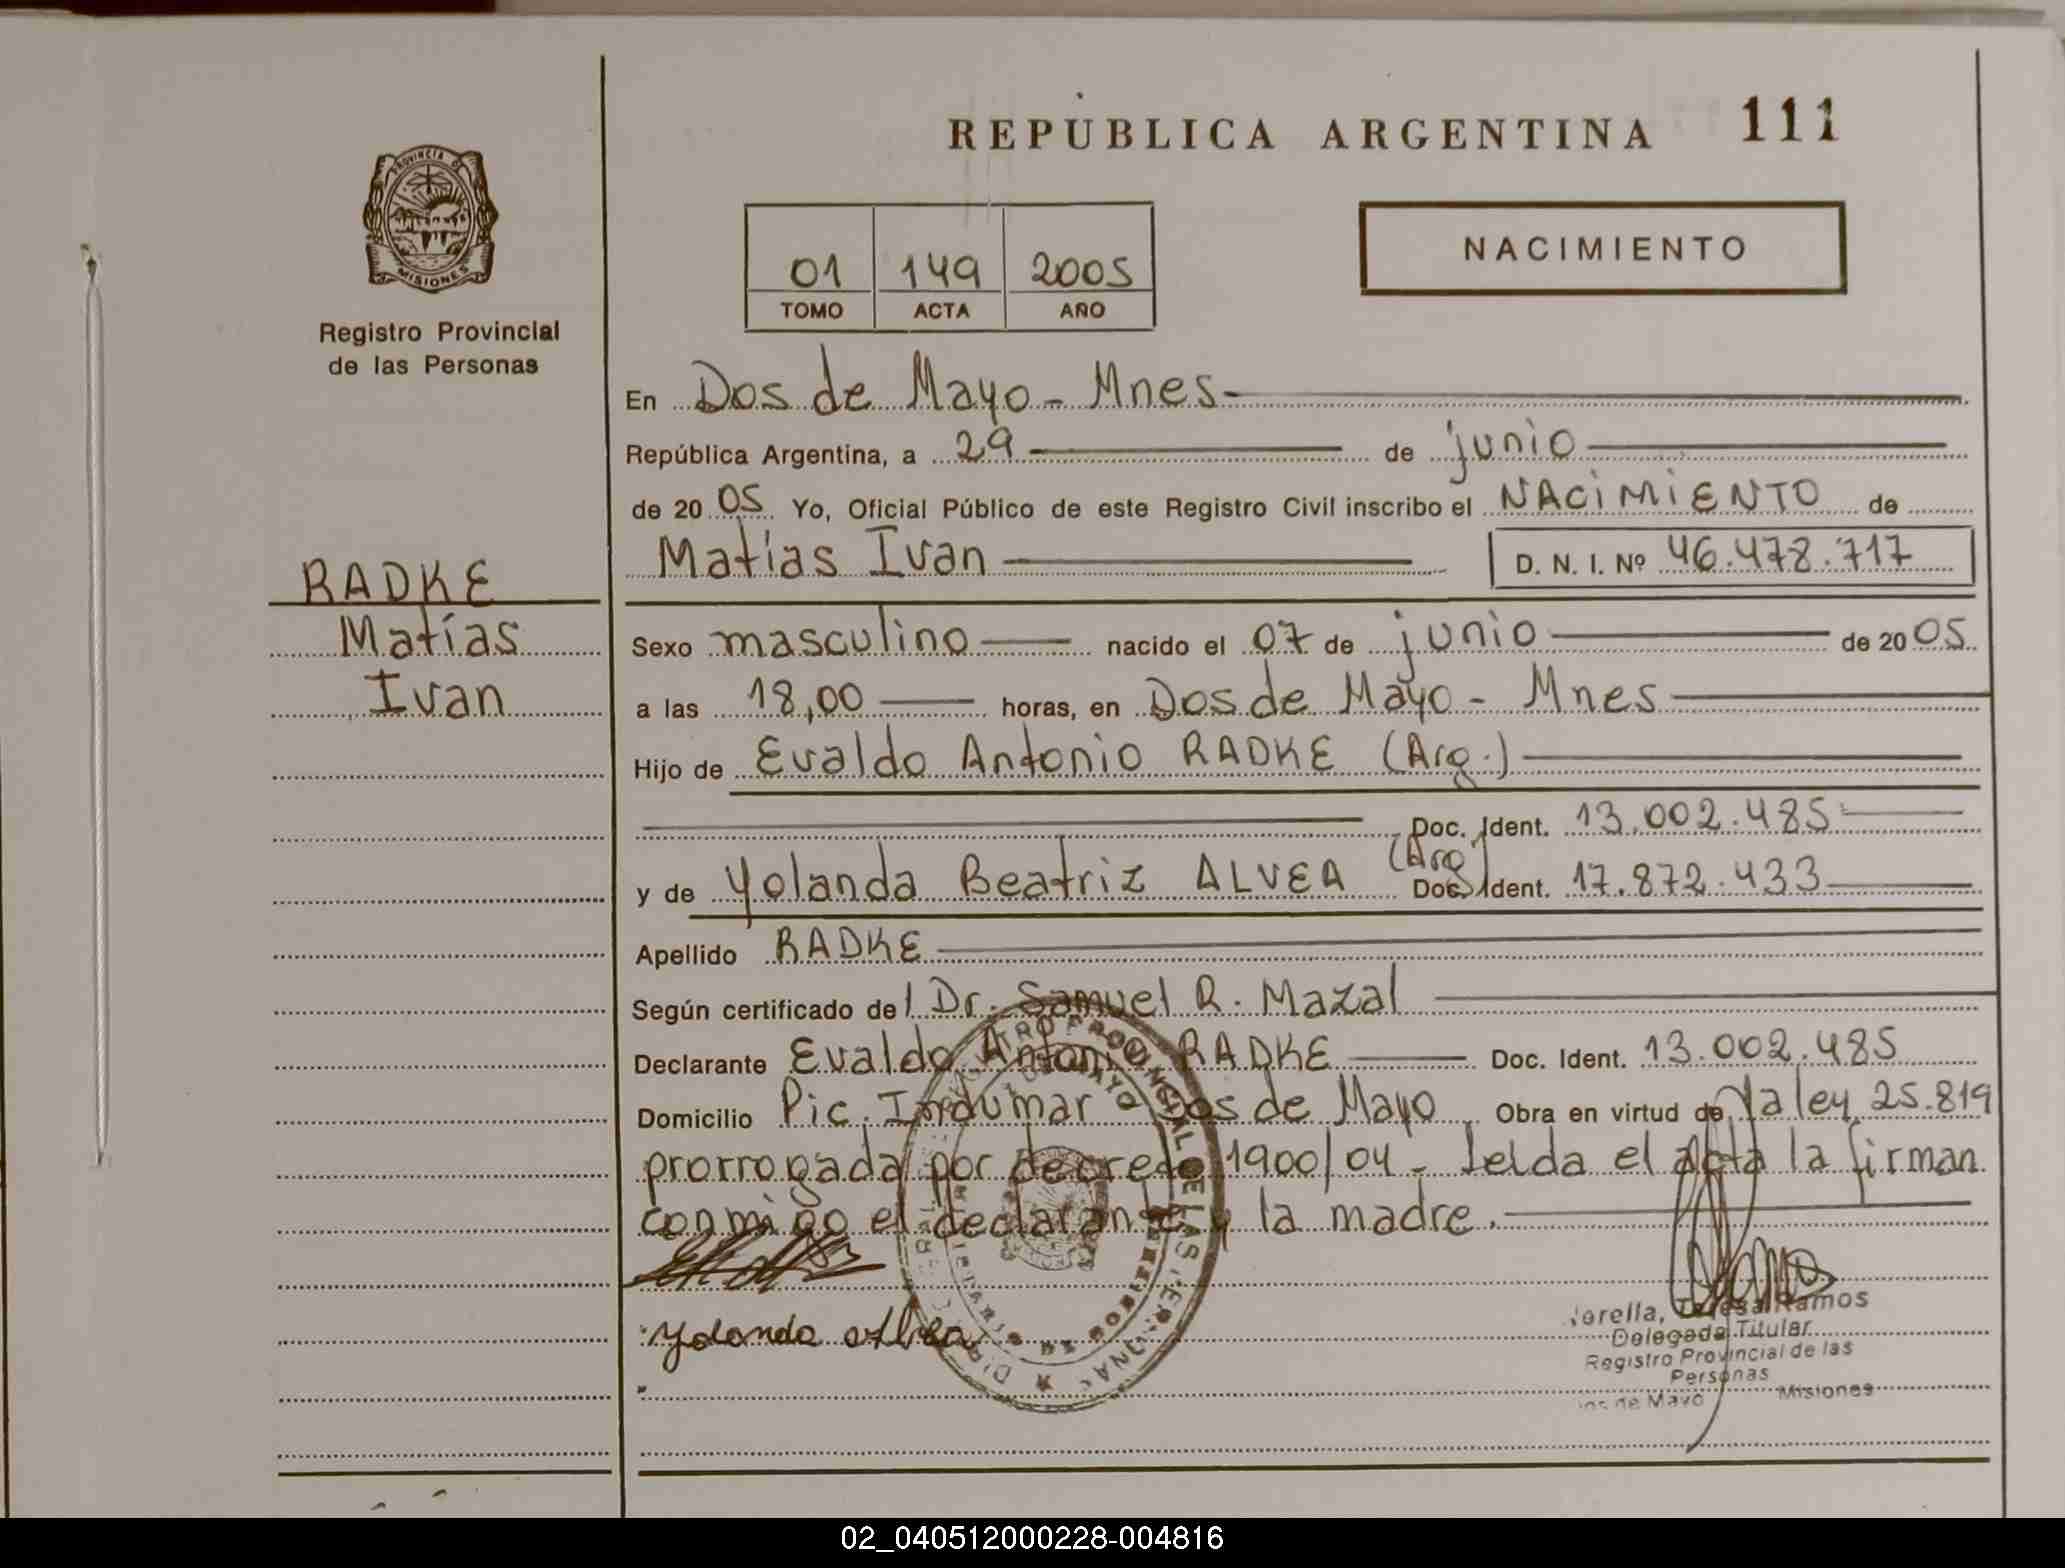 REPUBLICA ARGENTINA 111
PROVINCIA DE
MISIONES
Registro Provincial
de las Personas
01 149 2005
TOMO ACTA AÑO
NACIMIENTO
En Dos de Mayo - Mnes
República Argentina, a 29 de junio
de 2005 Yo, Oficial Público de este Registro Civil inscribo el NACIMIENTO de
Matías Ivan D. N. I. Nº 46.478.717
RADKE
Matías
Ivan
Sexo masculino nacido el 07 de junio de 2005
a las 18,00 horas, en Dos de Mayo - Mnes
Hijo de Evaldo Antonio RADKE (Arg.)
Doc. Ident. 13.002.485
y de Yolanda Beatriz ALVEA (Arg) Doc. Ident. 17.872.433
Apellido RADKE
Según certificado del Dr. Samuel R. Mazal
Declarante Evaldo Antonio RADKE Doc. Ident. 13.002.485
Domicilio Pic. Indumar - Dos de Mayo Obra en virtud de la ley 25.819
prorrogada por decreto 1900/04 - leida el acta la firman
conmigo el declarante y la madre.
Yolanda Alvea
Teresa Ramos
Delegada Titular
Registro Provincial de las
Personas
de Mayo Misiones
02_040512000228-004816